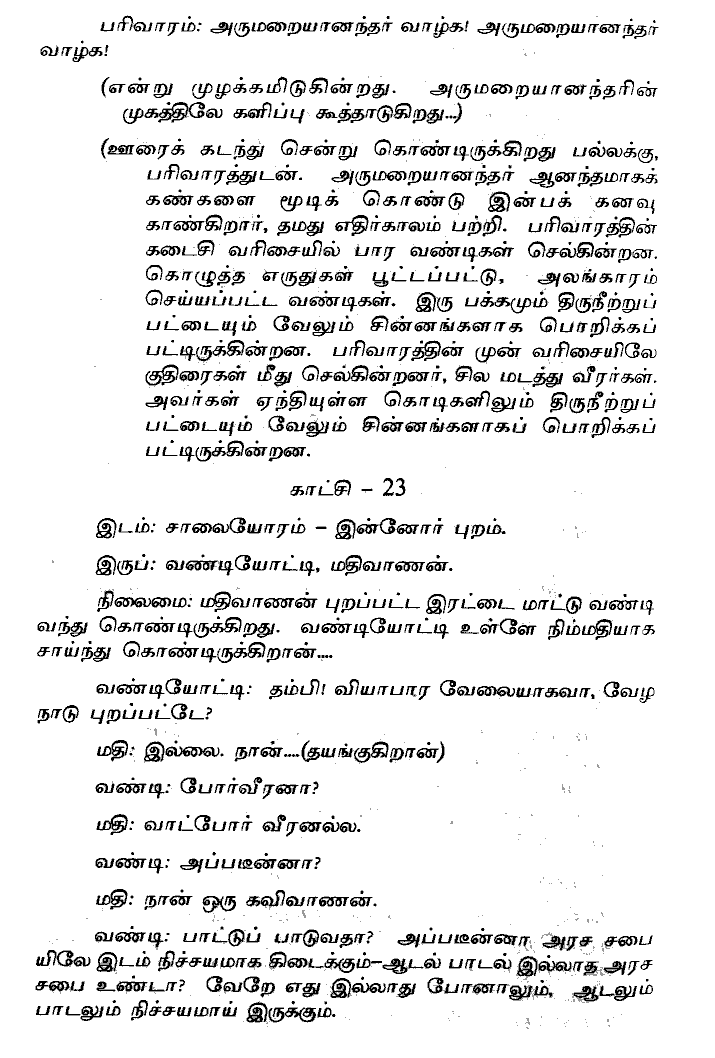 பரிவாரம்: அருமறையானந்தர் வாழ்க! அருமறையானந்தர்
வாழ்க!
(என்று முழக்கமிடுகின்றது. அருமறையானந்தரின்
முகத்திலே களிப்பு கூத்தாடுகிறது...)
(ஊரைக் கடந்து சென்று கொண்டிருக்கிறது பல்லக்கு,
பரிவாரத்துடன். அருமறையானந்தர் ஆனந்தமாகக்
கண்களை மூடிக் கொண்டு இன்பக் கனவு
காண்கிறார், தமது எதிர்காலம் பற்றி. பரிவாரத்தின்
கடைசி வரிசையில் பார வண்டிகள் செல்கின்றன.
கொழுத்த எருதுகள் பூட்டப்பட்டு, அலங்காரம்
செய்யப்பட்ட வண்டிகள். இரு பக்கமும் திருநீற்றுப்
பட்டையும் வேலும் சின்னங்களாக பொறிக்கப்
பட்டிருக்கின்றன. பரிவாரத்தின் முன் வரிசையிலே
குதிரைகள் மீது செல்கின்றனர், சில மடத்து வீரர்கள்.
அவர்கள் ஏந்தியுள்ள கொடிகளிலும் திருநீற்றுப்
பட்டையும் வேலும் சின்னங்களாகப் பொறிக்கப்
பட்டிருக்கின்றன.
காட்சி - 23
இடம்: சாலையோரம் – இன்னோர் புறம்.
இருப்: வண்டியோட்டி, மதிவாணன்.
நிலைமை: மதிவாணன் புறப்பட்ட இரட்டை மாட்டு வண்டி
வந்து கொண்டிருக்கிறது. வண்டியோட்டி உள்ளே நிம்மதியாக
சாய்ந்து கொண்டிருக்கிறான்....
வண்டியோட்டி: தம்பி! வியாபார வேலையாகவா, வேழ
நாடு புறப்பட்டே?
மதி: இல்லை. நான்....(தயங்குகிறான்)
வண்டி: போர்வீரனா?
மதி: வாட்போர் வீரனல்ல.
வண்டி: அப்படீன்னா?
மதி: நான் ஒரு கவிவாணன்.
வண்டி: பாட்டுப் பாடுவதா? அப்படீன்னா அரச சபை
யிலே இடம் நிச்சயமாக கிடைக்கும்–ஆடல் பாடல் இல்லாத அரச
சபை உண்டா? வேறே எது இல்லாது போனாலும், ஆடலும்
பாடலும் நிச்சயமாய் இருக்கும்.